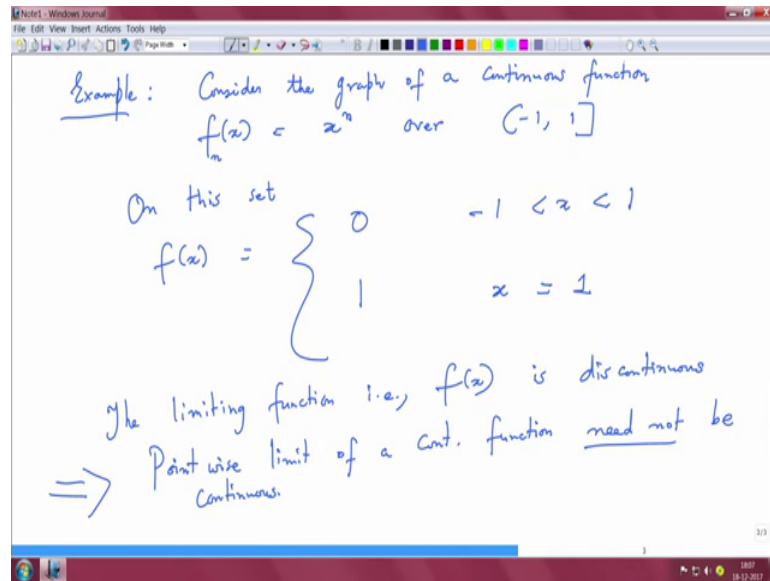 Note1 - Windows Journal
File Edit View Insert Actions Tools Help
Page Width
Example: Consider the graph of a continuous function
fₙ(x) = xⁿ over (-1, 1]
On this set
f(x) = { 0 -1 < x < 1
1 x = 1
The limiting function i.e., f(x) is discontinuous
⇒ Point wise limit of a cont. function need not be
continuous.
3/3
3
18:07
18-12-2017